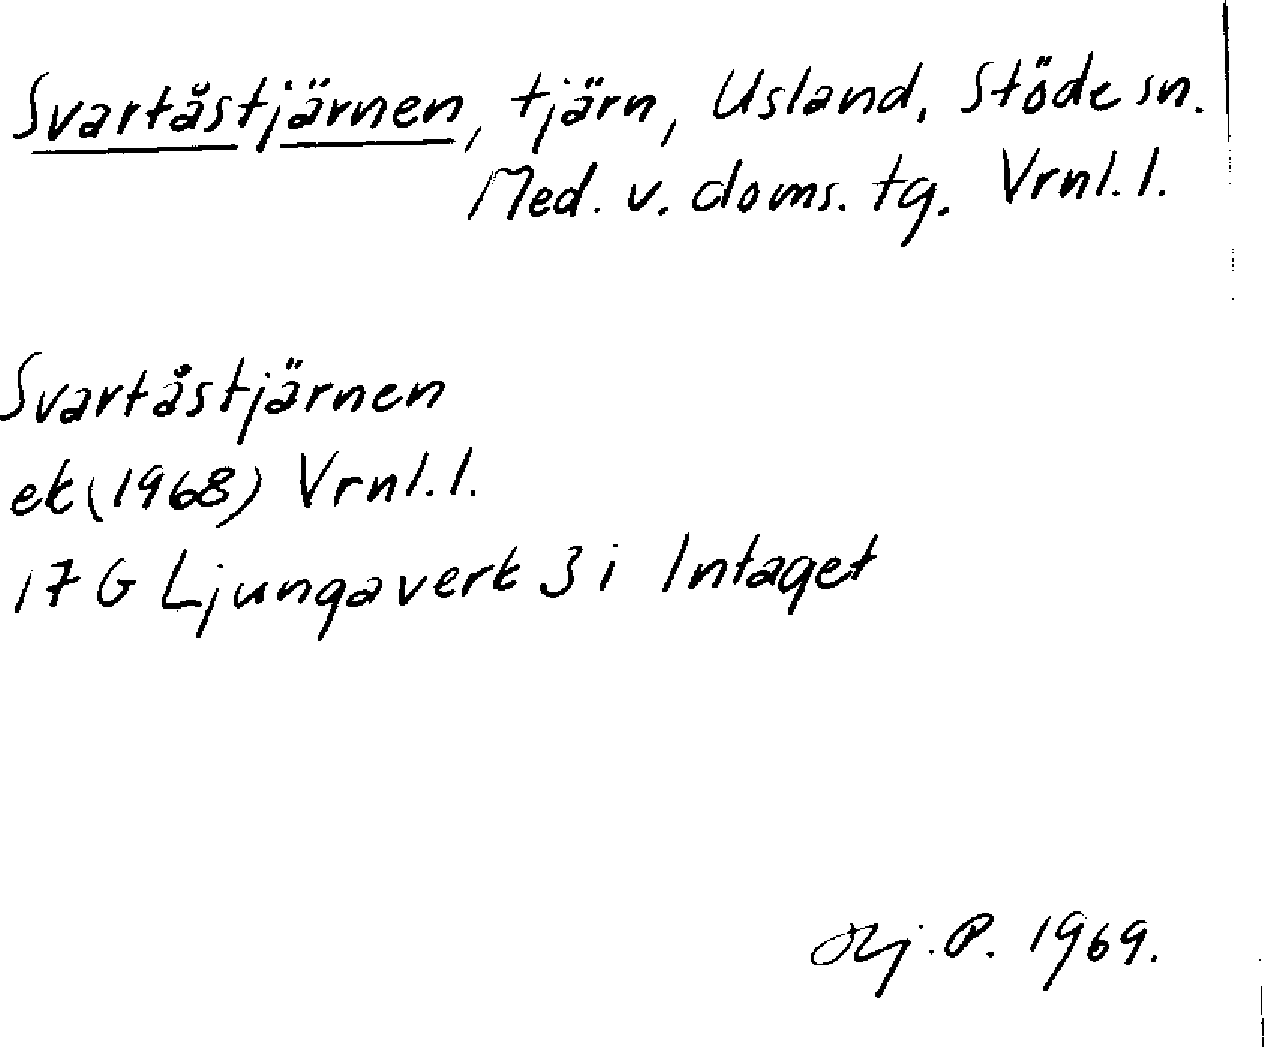 Svartåstjärnen, tjärn, Usland, Stöde sn.
Med. v. doms. tg. Vrnl. l.
Svartåstjärnen
ek (1968) Vrnl. l.
17 G Ljungaverk 3 i Intaget
Hj. P. 1969.